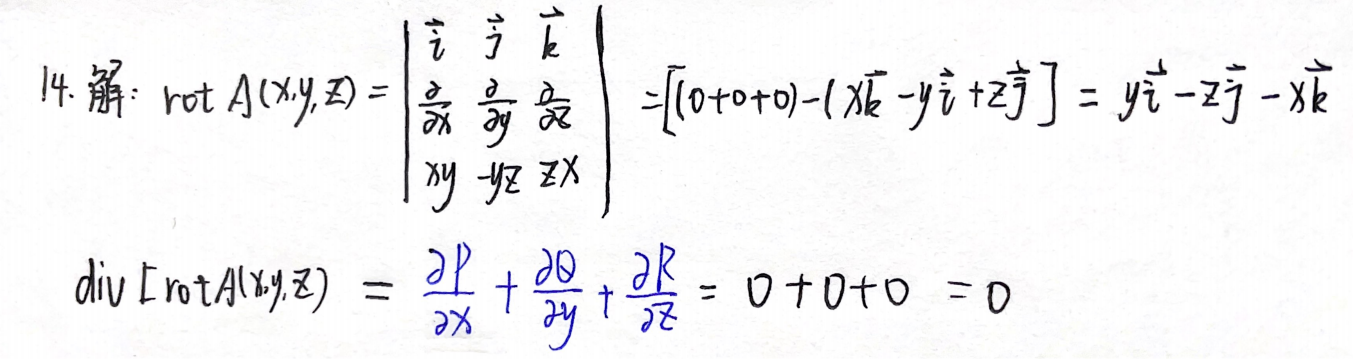 14. 解: rot A(x,y,z) = | \vec{i} \vec{j} \vec{k} ; \frac{∂}{∂x} \frac{∂}{∂y} \frac{∂}{∂z} ; xy -yz zx | = [(0+0+0)-(x\vec{k} - y\vec{i} + z\vec{j}] = y\vec{i} - z\vec{j} - x\vec{k}
div [rot A(x,y,z) = \frac{∂P}{∂x} + \frac{∂Q}{∂y} + \frac{∂R}{∂z} = 0+0+0 = 0